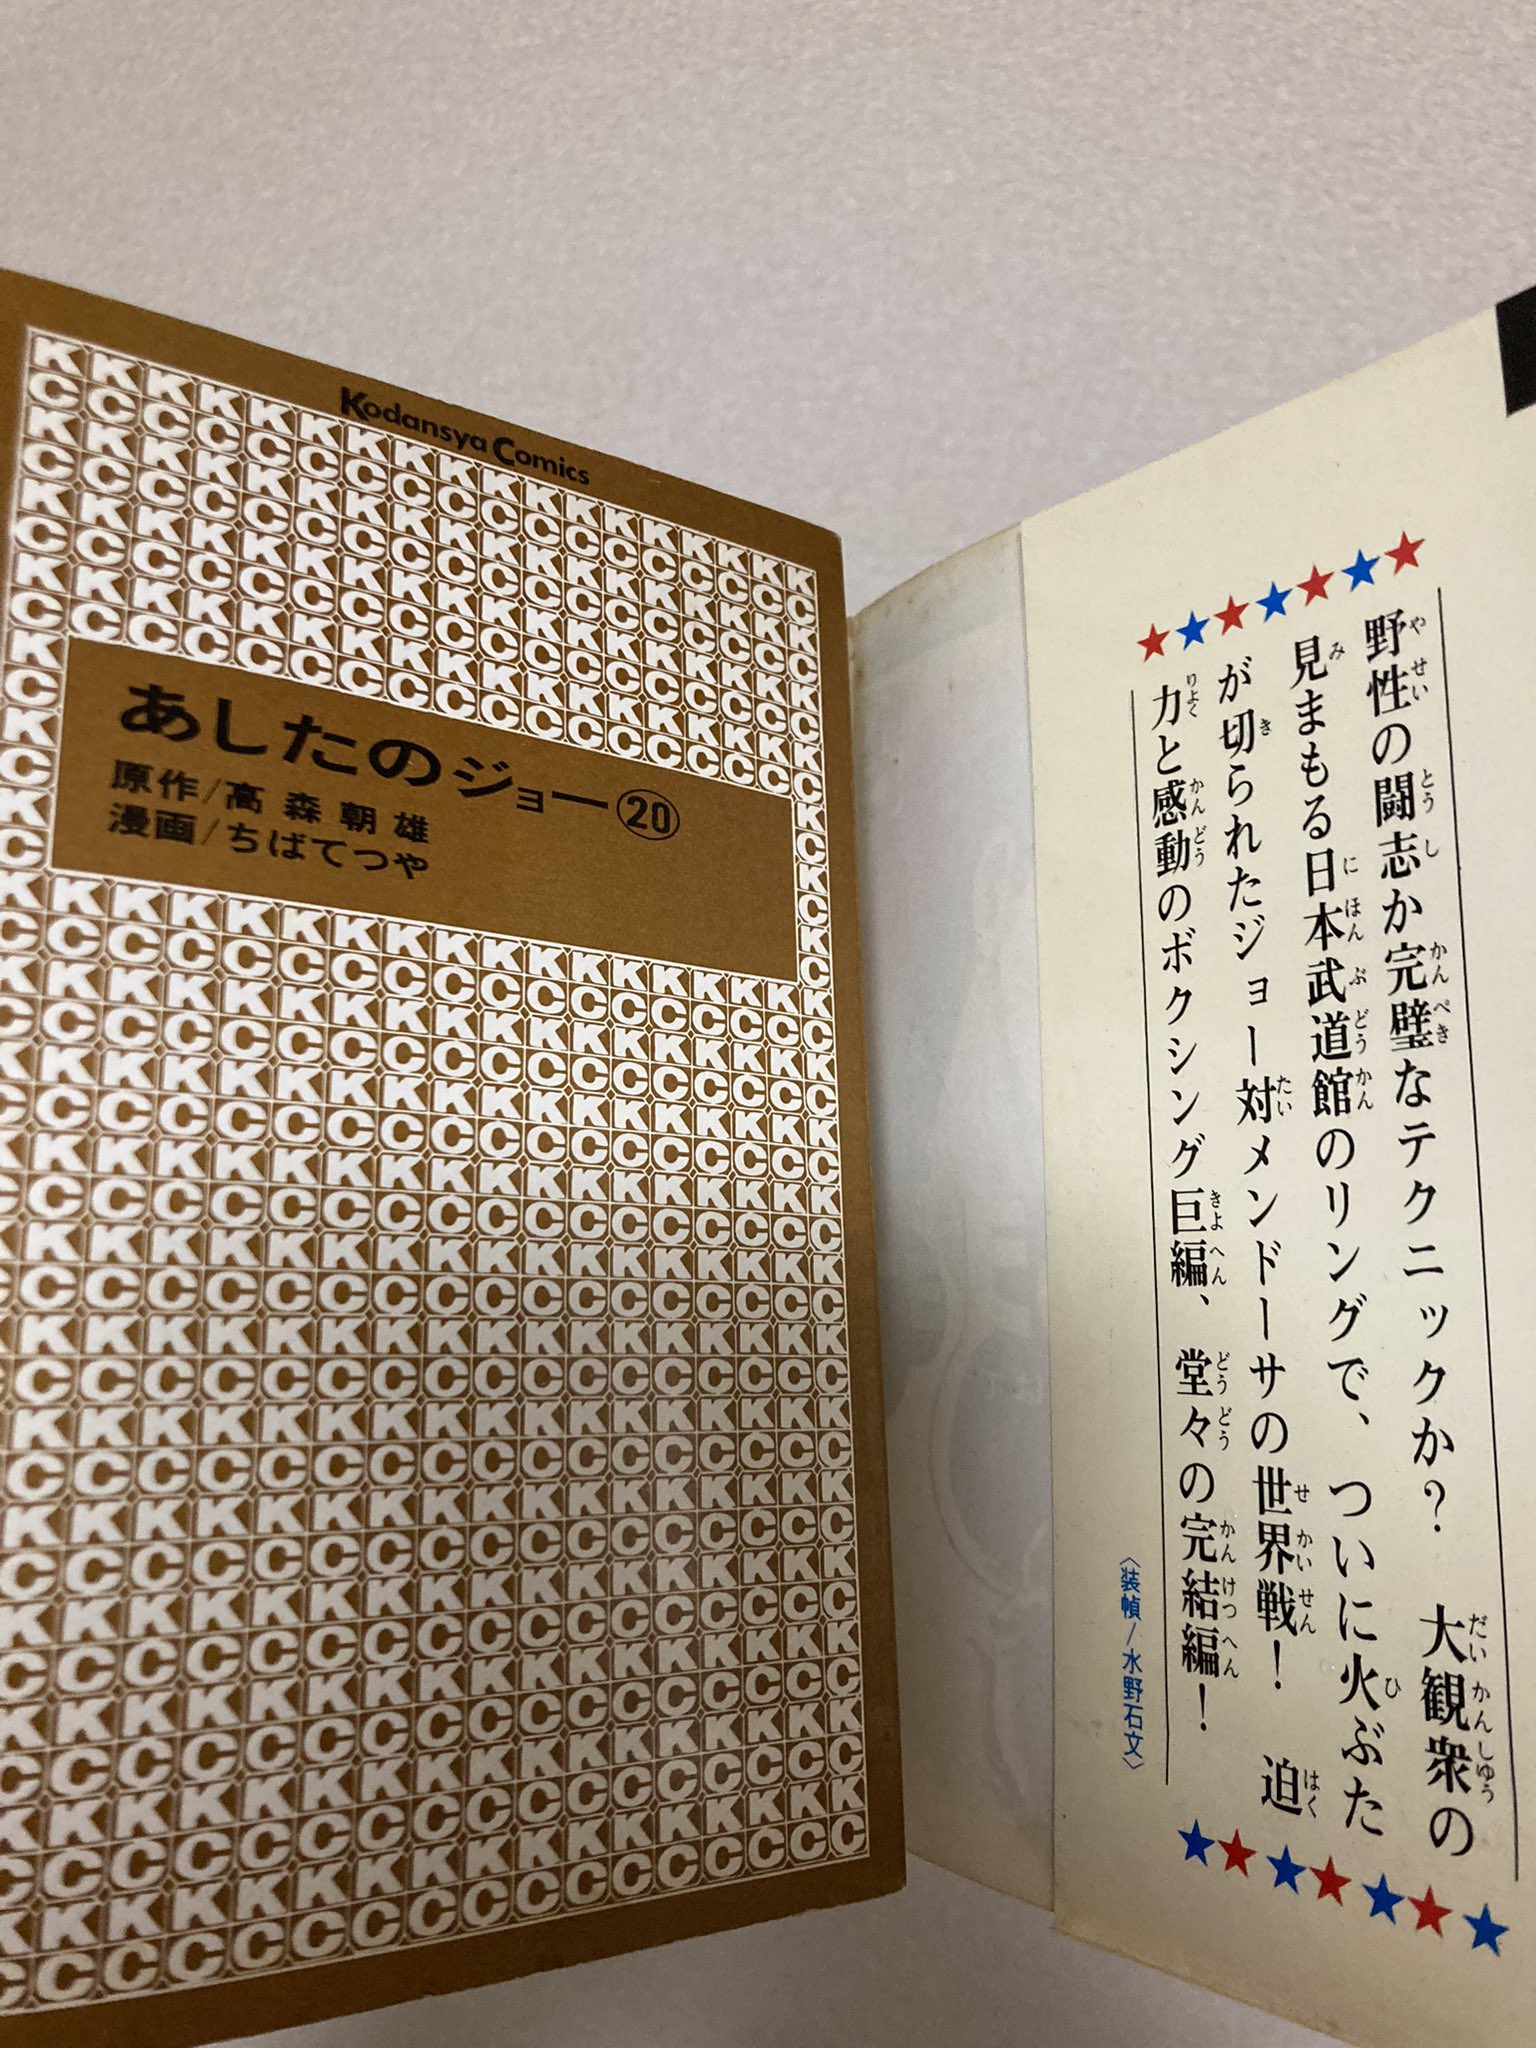 Kodansya Comics
あしたのジョー⑳
原作/高森朝雄
漫画/ちばてつや
野性の闘志か完璧なテクニックか? 大観衆の
見まもる日本武道館のリングで、ついに火ぶた
が切られたジョー対メンドーサの世界戦! 迫
力と感動のボクシング巨編、堂々の完結編!
〈装幀/水野石文〉